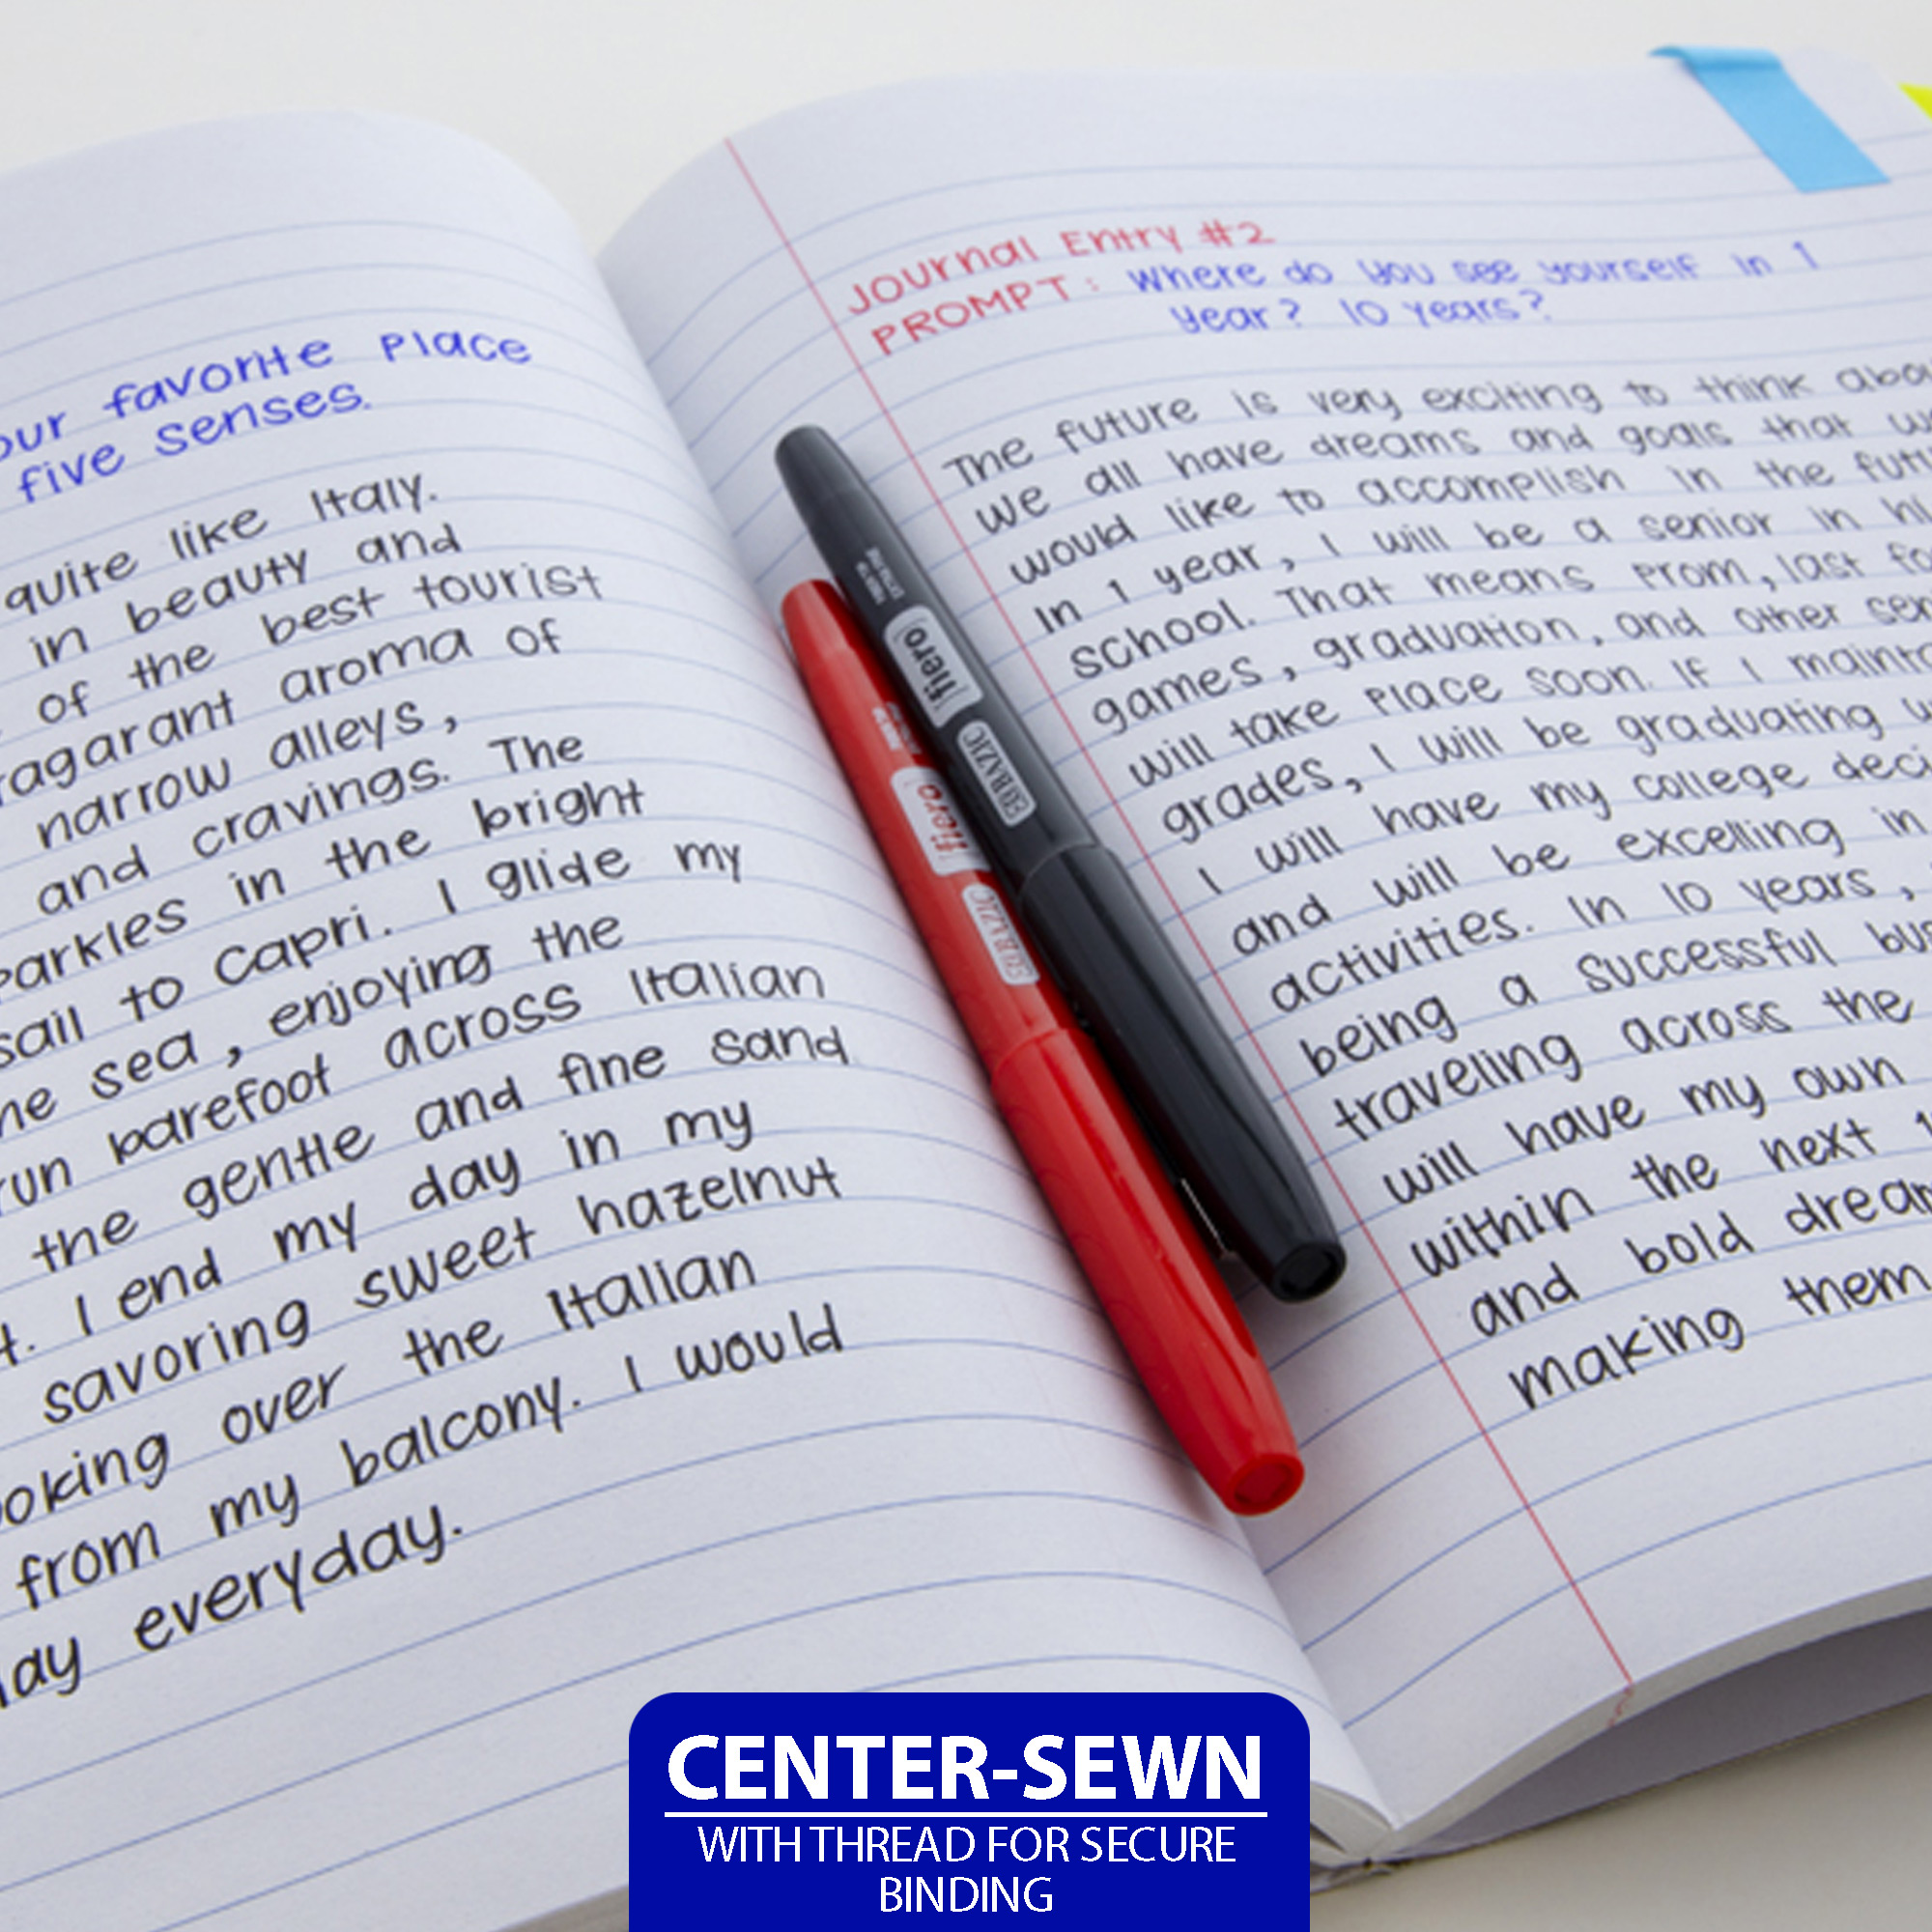 our favorite place
five senses.
quite like Italy.
in beauty and
of the best tourist
ragarant aroma of
narrow alleys,
and cravings. The
parkles in the bright
sail to Capri. I glide my
he sea, enjoying the
run barefoot across Italian
the gentle and fine sand
t. I end my day in my
savoring sweet hazelnut
ooking over the Italian
from my balcony. I would
lay everyday.
Journal Entry #2
PROMPT: Where do you see yourself in 1
year? 10 years?
The future is very exciting to think abou
We all have dreams and goals that w
would like to accomplish in the futu
In 1 year, I will be a senior in hi
school. That means Prom, last fo
games, graduation, and other sen
will take place soon. If I mainta
grades, I will be graduating w
I will have my college deci
and will be excelling in
activities. In 10 years,
being a successful bus
traveling across the
will have my own
within the next 1
and bold dream
making them
fiero
BAZIC
fiero
BAZIC
CENTER-SEWN
WITH THREAD FOR SECURE
BINDING